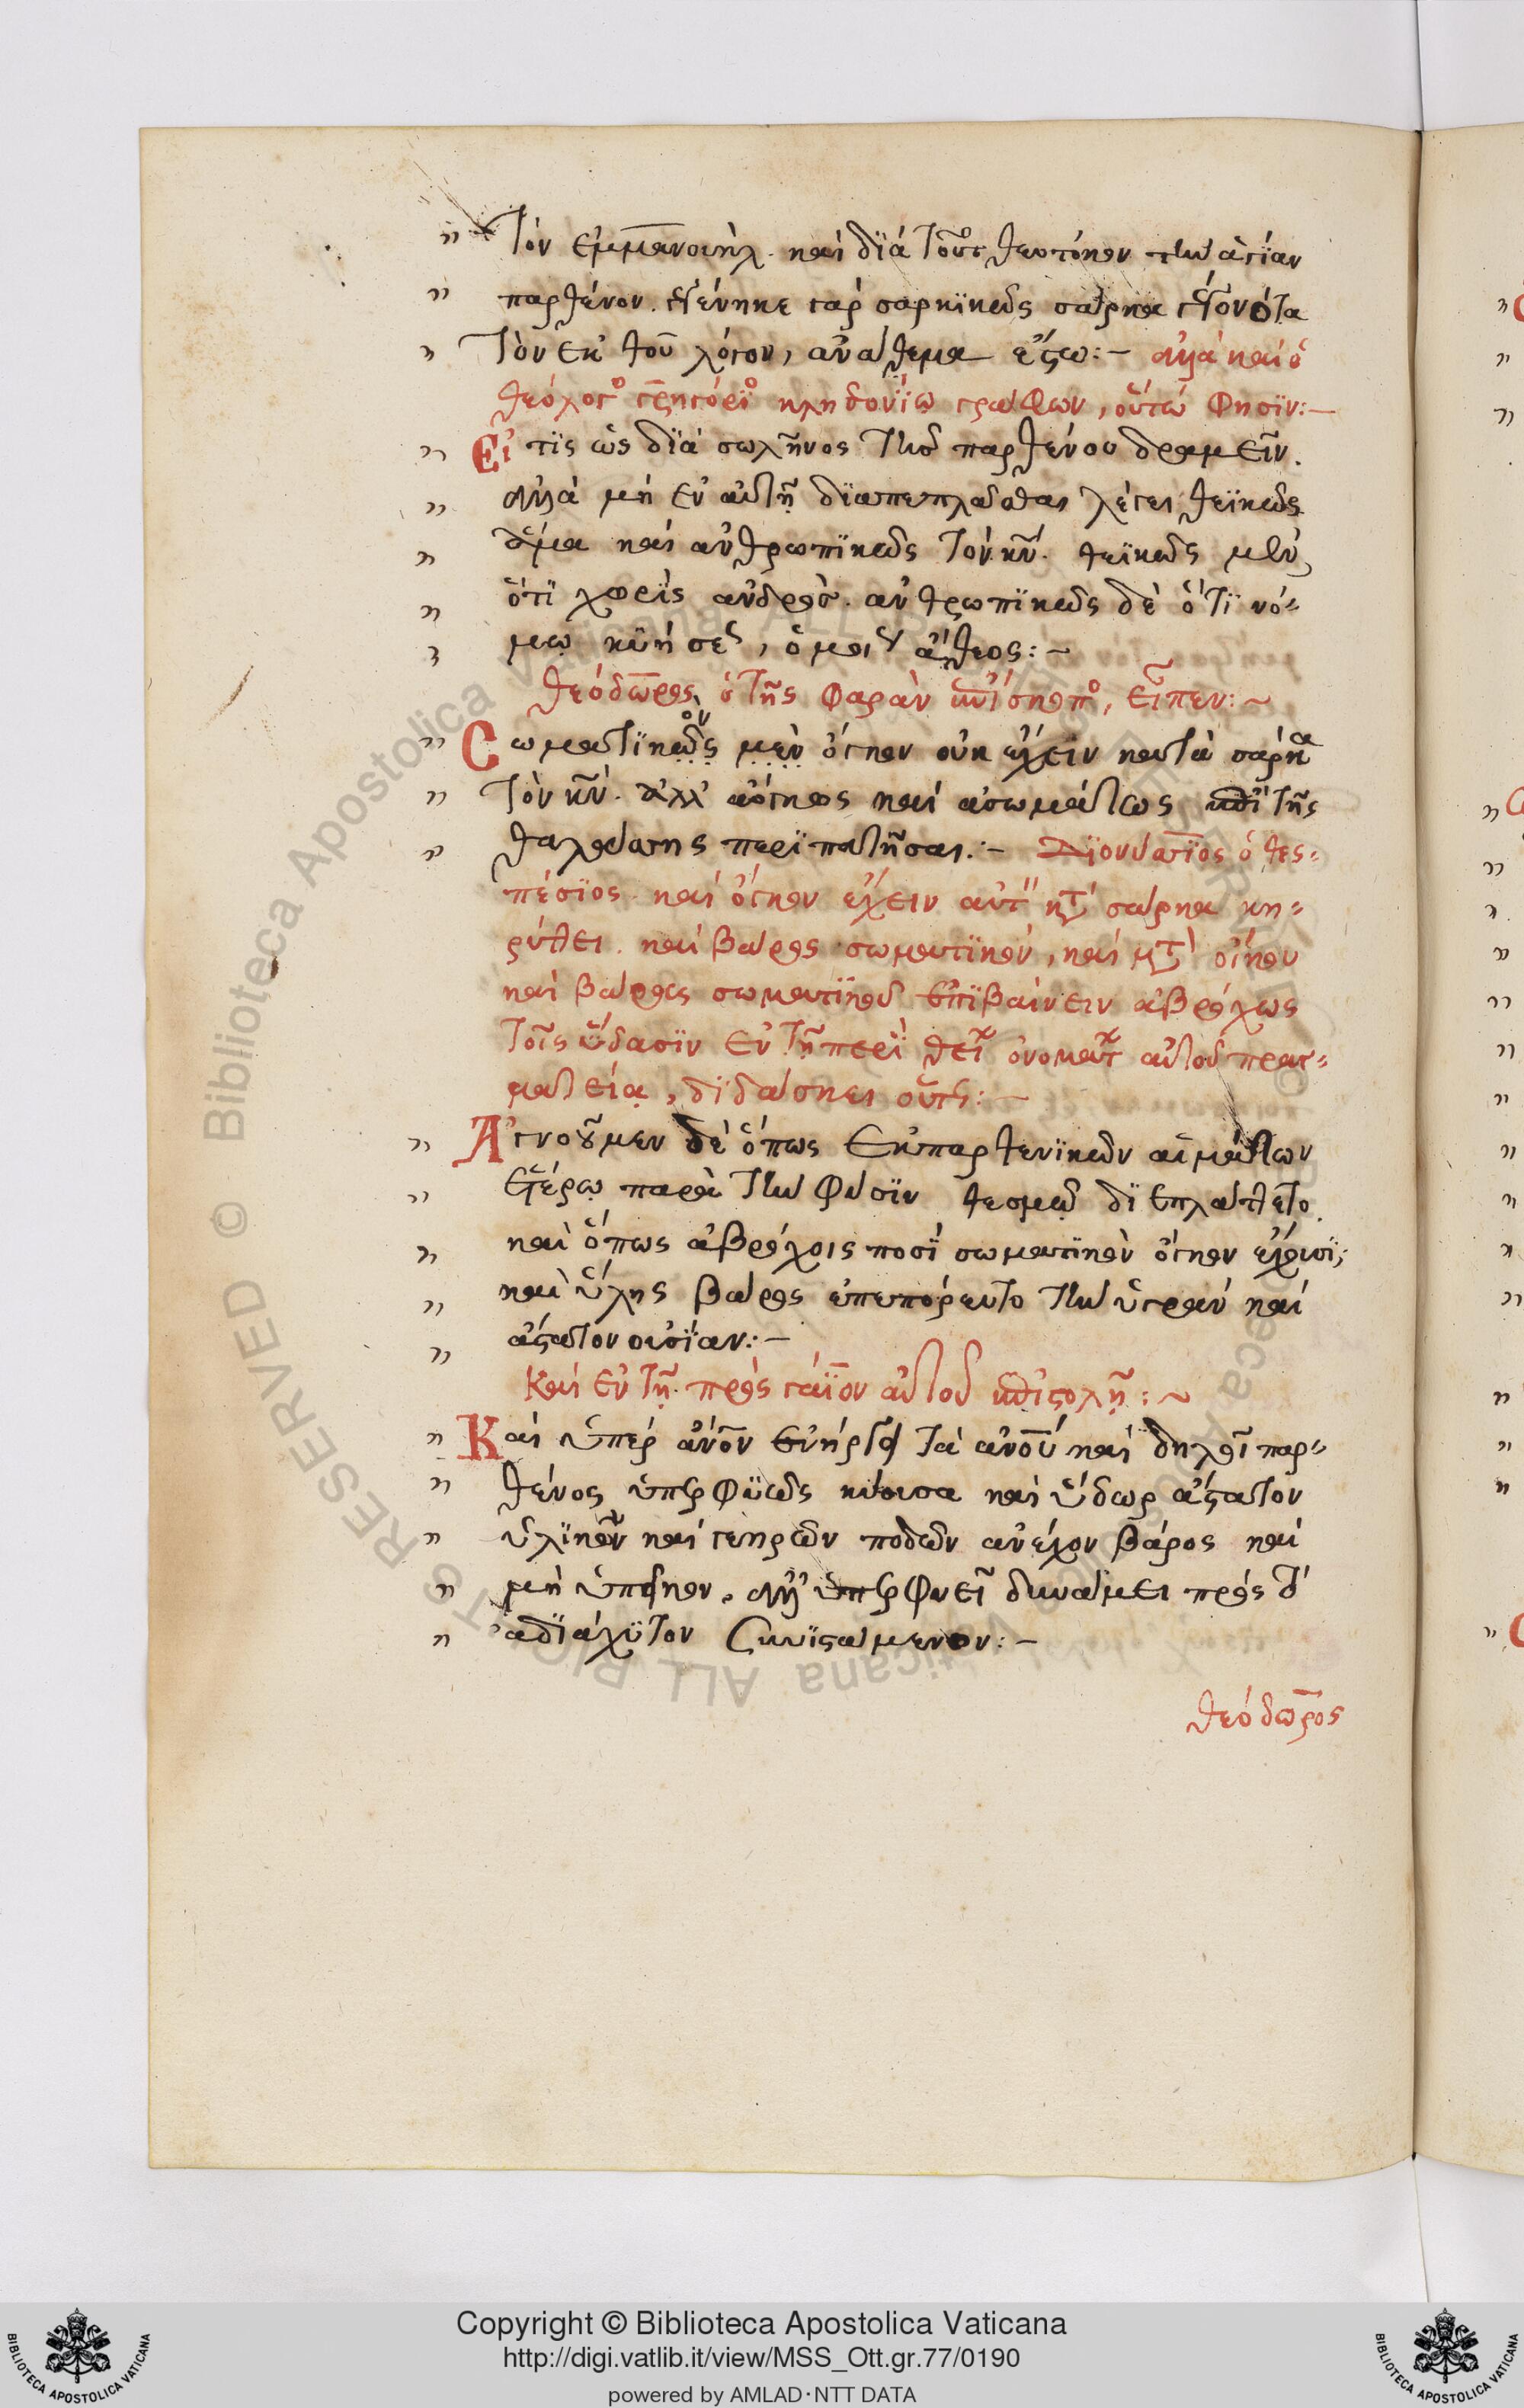 τὸν ἐμμανουήλ. καὶ διὰ τοῦτο θεοτόκον τὴν ἁγίαν
παρθένον. γεγέννηκε γὰρ σαρκικῶς σάρκα γεγονότα
τὸν ἐκ θ̅υ̅ λόγον, ἀνάθεμα ἔστω:— ἀλλὰ καὶ ὁ
θεόλογος γρηγόριος κληδονίῳ γράφων, οὕτω φησϊν:—
Εἴ τις ὡς διὰ σωλῆνος τῆς παρθένου δραμεῖν.
ἀλλὰ μὴ ἐν αὐτῇ διαπεπλάσθαι λέγει θεϊκῶς
ἅμα καὶ ἀνθρωπικῶς τὸν κ̅ν̅. θεϊκῶς μὲν,
ὅτι χωρὶς ἀνδρός. ἀνθρωπικῶς δὲ ὅτι νό-
μῳ κυήσεως, ὁμοίως ἄθεος:~
θεόδωρος ὁ τῆς φαρὰν ἐπίσκοπος, εἶπεν:~
Σωματικῶς ὸν μὲν ὄγκον οὐκ ἔχειν κατὰ σάρκα
τὸν κ̅ν̅. ἀλλ' ἀόγκως καὶ ἀσωμάτως ἐπὶ τῆς
θαλάσσης περιπατῆσαι:— Διονύσιος ὁ θεσ-
πέσιος καὶ ὄγκον ἔχειν αὐτὸν κατὰ σάρκα κη-
ρύττει. καὶ βάρος σωματικὸν, καὶ μετὰ ὄγκου
καὶ βάρους σωματικοῦ ἐπιβαίνειν ἀβρόχως
τοῖς ὕδασιν ἐν τῇ περὶ θείων ὀνομάτων αὐτοῦ πραγ-
ματείᾳ, διδάσκει οὕτως:—
Ἀγνοοῦμεν δὲ ὅπως ἐκ παρθενικῶν αἱμάτων
ἑτέρῳ παρὰ τὴν φύσιν θεσμῷ διεπλάττετο.
καὶ ὅπως ἀβρόχοις ποσὶ σωματικὸν ὄγκον ἔχουσι,
καὶ ὕλης βάρος ἐπεπόρευτο τὴν ὑγρὰν καὶ
ἄστατον οὐσίαν:—
Καὶ ἐν τῇ πρὸς γάϊον αὐτοῦ ἐπιστολῇ:~
Καὶ ὑπὲρ ἄνον ἐνήργει τὰ ἀνου καὶ δηλοῖ παρ-
θένος ὑπερφυῶς κύουσα καὶ ὕδωρ ἄστατον
ὑλικῶν καὶ γεηρῶν ποδῶν ἀνέχον βάρος καὶ
μὴ ὑπεῖκον. ἀλλ' ὑπερφυεῖ δυνάμει πρὸς τὸ
ἀδιάχυτον συνιστάμενον:—
θεόδωρος
Copyright © Biblioteca Apostolica Vaticana
http://digi.vatlib.it/view/MSS_Ott.gr.77/0190
powered by AMLAD·NTT DATA